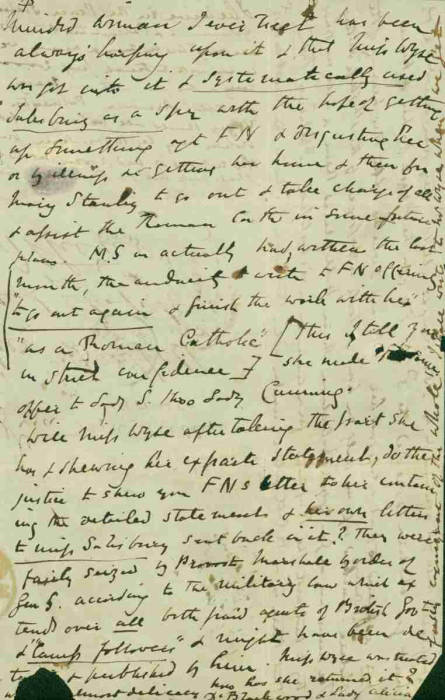 minded woman I ever met has been
always harping upon it & that Miss Wyse
was got into it & systematically used
Salisbury as a spy with the hope of getting
up something agt FN & disgusting her
or by illness & getting her home & then for
Mary Stanley to go out & take charge of all
& assist the Roman Cath in some future
plans. M.S in actually had, within the last
month, the audacity to write to FN offering
"to go out again & finish the work with her"
"as a Roman Catholic" [this I tell you
in strict confidence] she made the same
offer to Lady S. thro Lady Canning.
Will Miss Wyse after taking the part she
has & shewing her exparte statement, do the
justice to shew you FNs letter to her contain
ing the detailed statements & her own letters
to Miss Salisbury sent back in it? They were
fairly seized by Provost Marshale by order of
Gen S. according to the military law which ex
tends over all both paid agents of British Govt
& "Camp followers" & might have been de
& published by him. Miss Wyse was treated
almost delicacy has she returned it?
Blackwood & Lady Alicia